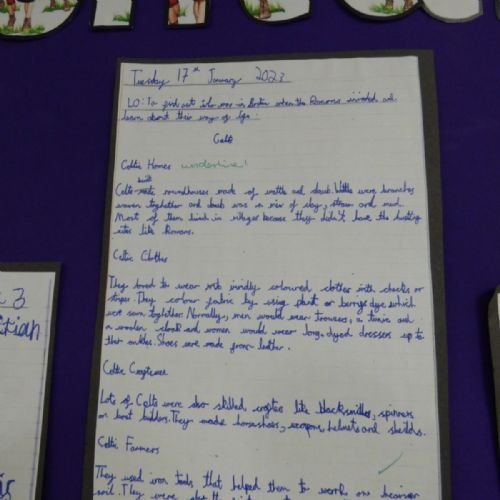 Tuesday 17th January 2023
LO: To find out who was in Britain when the Romans invaded and
learn about their way of life.
Celts
Celtic Homes underline!
Celts built roundhouses made of wattle and daub. Wattle were branches
woven together and daub was a mix of clay, straw and mud.
Most of them lived in villages because they didn't have the bustling
cities like Romans.
Celtic Clothes
They loved to wear coloured clothes with checks or
stripes. They colour fabric by using plant or berrys dye which
were sewn together. Normally, men would wear trousers, a tunic and
a woolen cloak and women would wear long dyed dresses up to
their ankles. Shoes were made from leather.
Celtic
Lots of Celts were also skilled crafters like blacksmiths, spinners
or boat builders. They made horseshoes, weapons, helmets and shields.
Celtic Farmers
They used iron tools that helped them to work on heavier
soil. They were
3